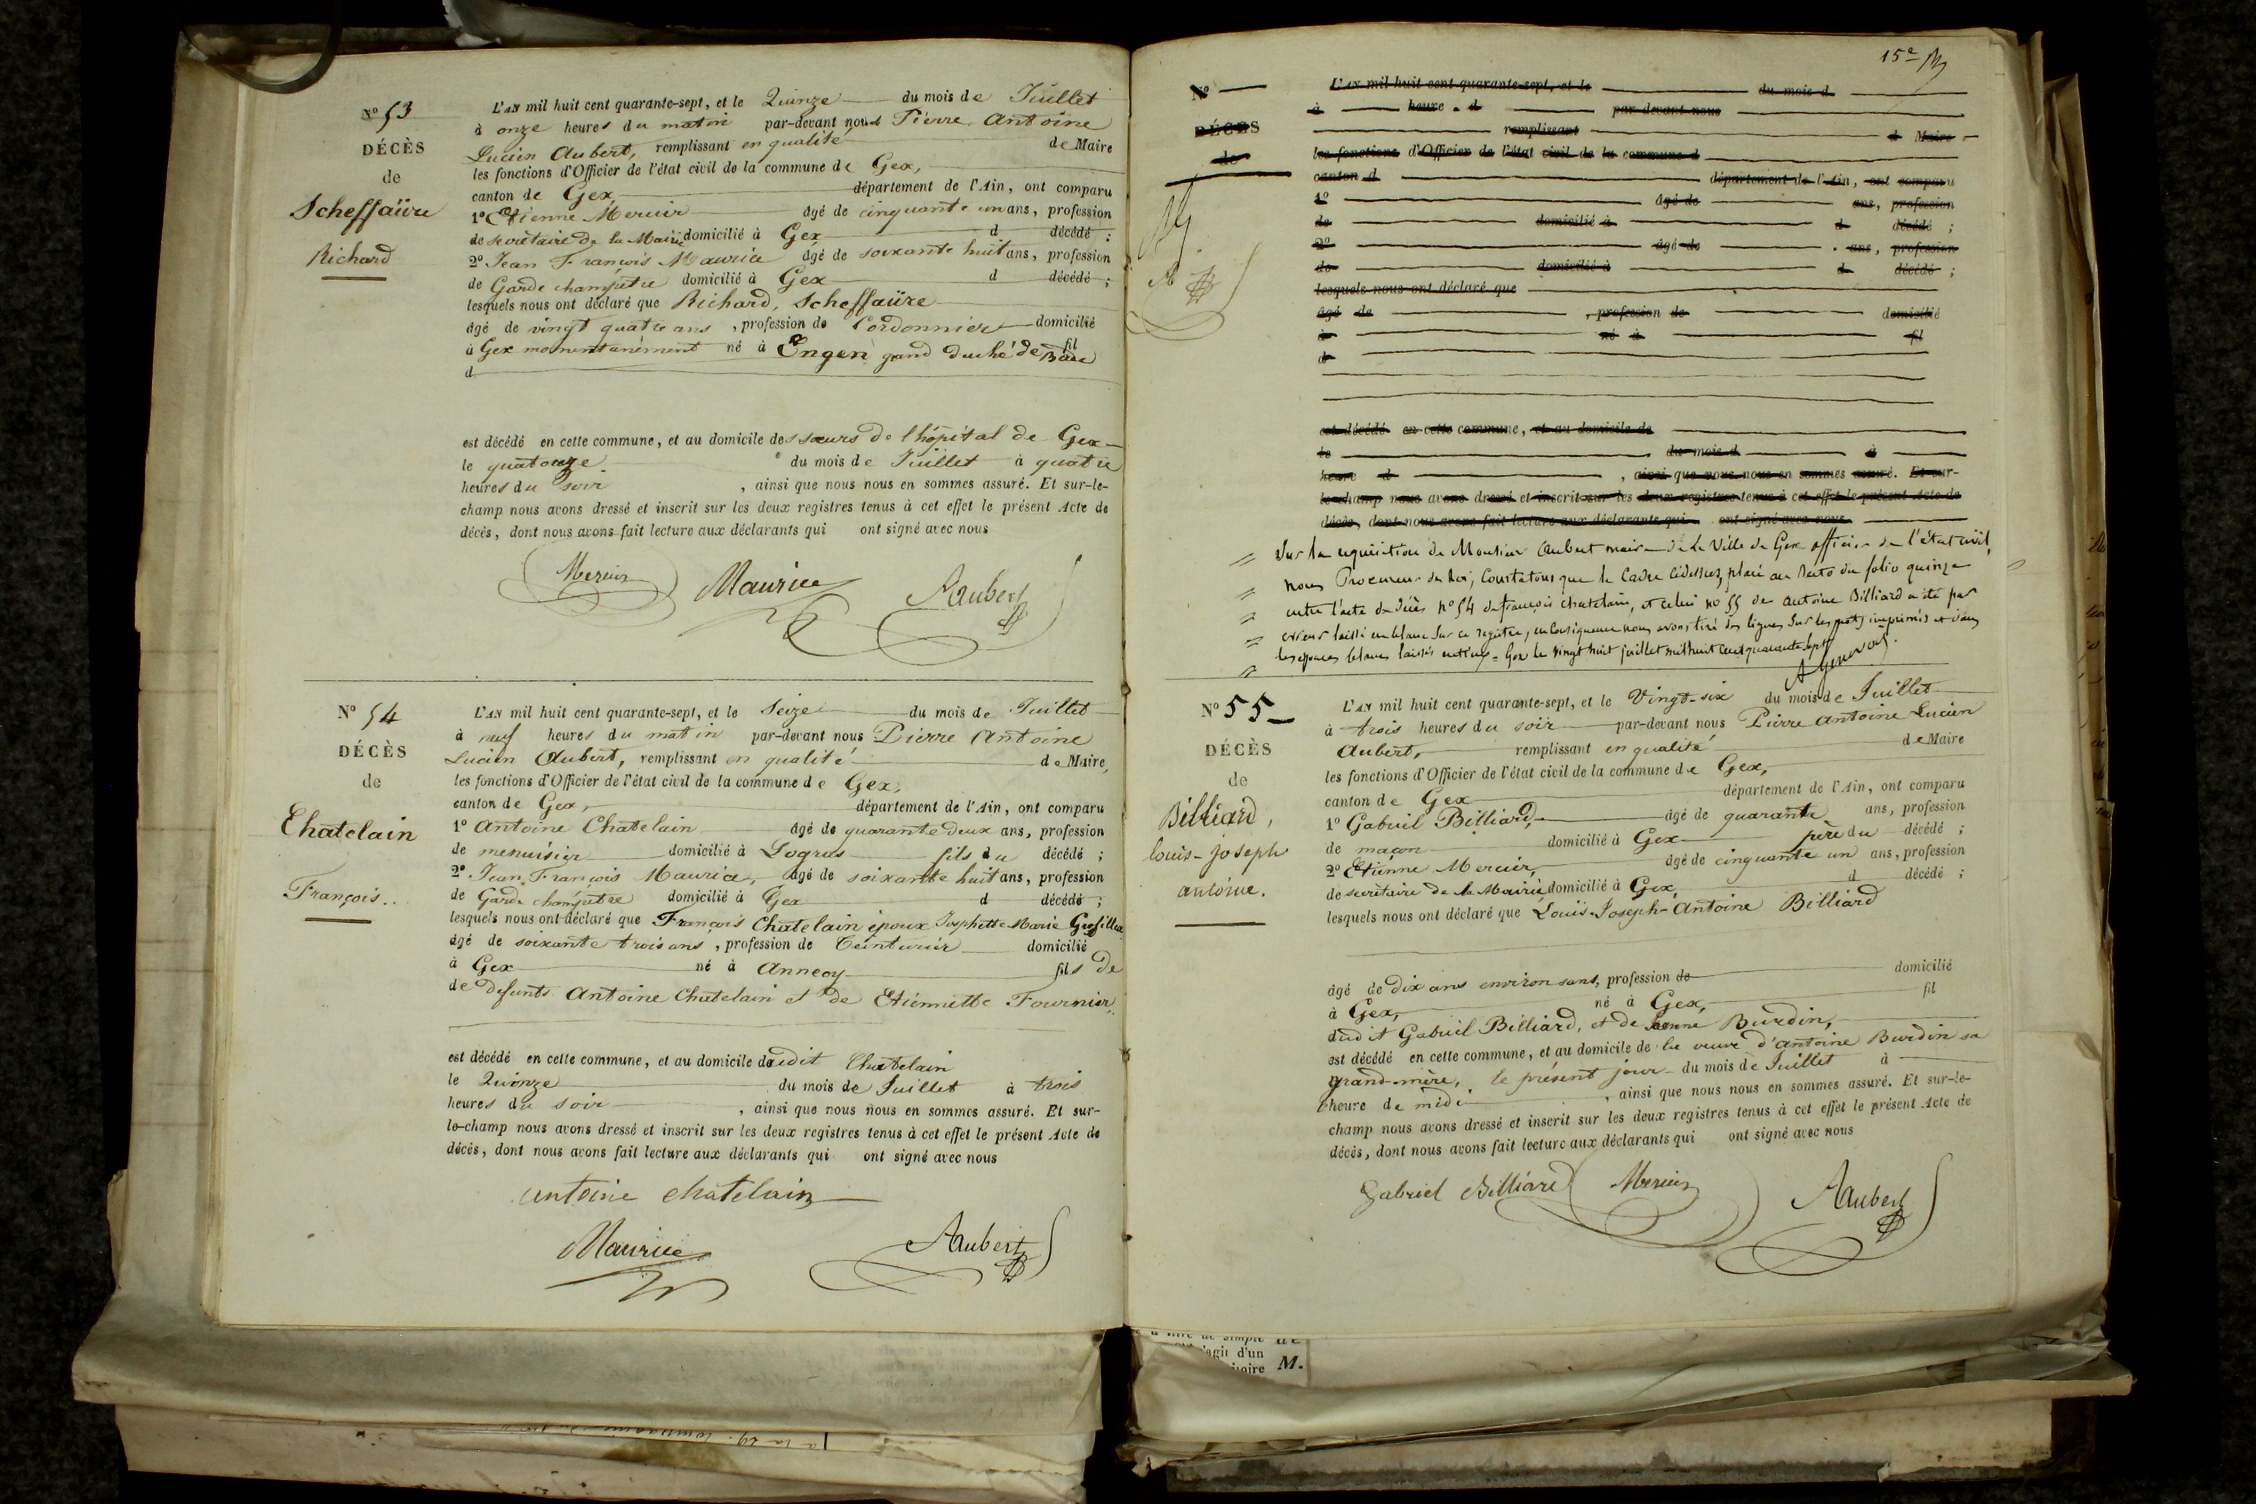 Nº 53
DÉCÈS
de
Scheffaüre
Richard
L'AN mil huit cent quarante-sept, et le Quinze du mois de Juillet
à onze heures du matin par-devant nous Pierre Antoine
Lucien Aubert, remplissant en qualité de Maire
les fonctions d'Officier de l'état civil de la commune de Gex,
canton de Gex, département de l'Ain, ont comparu
1º Etienne Mercier âgé de cinquante un ans, profession
de secrétaire de la Mairie domicilié à Gex d décédé ;
2º Jean François Maurice âgé de soixante huit ans, profession
de Garde champêtre domicilié à Gex d décédé ;
lesquels nous ont déclaré que Richard, Scheffaüre
âgé de vingt quatre ans , profession de Cordonnier domicilié
à Gex momentanément né à Engen grand duché de Bade fil
d
est décédé en cette commune, et au domicile des sœurs de l'hôpital de Gex
le quatorze du mois de Juillet à quatre
heures du soir , ainsi que nous nous en sommes assuré. Et sur-le-
champ nous avons dressé et inscrit sur les deux registres tenus à cet effet le présent Acte de
décès, dont nous avons fait lecture aux déclarants qui ont signé avec nous
Mercier Maurice Aubert
Nº 54
DÉCÈS
de
Chatelain
François.
L'AN mil huit cent quarante-sept, et le Seize du mois de Juillet
à neuf heures du matin par-devant nous Pierre Antoine
Lucien Aubert, remplissant en qualité de Maire,
les fonctions d'Officier de l'état civil de la commune de Gex,
canton de Gex, département de l'Ain, ont comparu
1º Antoine Chatelain âgé de quarante deux ans, profession
de menuisier domicilié à Logras fils du décédé ;
2º Jean, François Maurice, âgé de soixante huit ans, profession
de Garde champêtre domicilié à Gex d décédé ;
lesquels nous ont déclaré que François Chatelain époux Josephette Marie
âgé de soixante trois ans , profession de Teinturier domicilié
à Gex né à Annecy fils de
de defunts Antoine Chatelain et de Etiennette Fournier,
est décédé en cette commune, et au domicile dudit Chatelain
le Quinze du mois de Juillet à trois
heures du soir , ainsi que nous nous en sommes assuré. Et sur-
le-champ nous avons dressé et inscrit sur les deux registres tenus à cet effet le présent Acte de
décès, dont nous avons fait lecture aux déclarants qui ont signé avec nous
antoine chatelain
Maurice Aubert
15e
Nº
DÉCÈS
de
L'AN mil huit cent quarante-sept, et le du mois d
à heure d par-devant nous
remplissant d Maire
les fonctions d'Officier de l'état civil de la commune d
canton d département de l'Ain, ont comparu
1º âgé de ans, profession
de domicilié à d décédé ;
2º âgé de ans, profession
de domicilié à d décédé ;
lesquels nous ont déclaré que
âgé de , profession de domicilié
à né à fil
d
est décédé en cette commune, et au domicile de
le du mois d à
heure d , ainsi que nous nous en sommes assuré. Et sur-
le-champ nous avons dressé et inscrit sur les deux registres tenus à cet effet le présent Acte de
décès, dont nous avons fait lecture aux déclarants qui ont signé avec nous
Sur la réquisition de Monsieur Aubert maire de la Ville de Gex officier de l'état civil,
nous Procureur du Roi, Constatons que le Cadre cidessus, placé au Recto du folio quinze
entre l'acte de décès nº 54 de françois chatelain, et celui nº 55 de antoine Billiard a été par
erreur laissé en blanc sur ce registre, en Conséquence nous avons tiré des lignes sur les mots imprimés et dans
les espaces blancs laissés entr'eux = Gex le vingt huit juillet mil huit cent quarante sept
Nº 55
DÉCÈS
de
Billiard,
louis-joseph
antoine.
L'AN mil huit cent quarante-sept, et le Vingt-six du mois de Juillet
à trois heures du soir par-devant nous Pierre Antoine Lucien
Aubert, remplissant en qualité de Maire
les fonctions d'Officier de l'état civil de la commune de Gex,
canton de Gex département de l'Ain, ont comparu
1º Gabriel Billiard, âgé de quarante ans, profession
de maçon domicilié à Gex père du décédé ;
2º Etienne Mercier, âgé de cinquante un ans, profession
de secrétaire de la Mairie domicilié à Gex, d décédé ;
lesquels nous ont déclaré que Louis-Joseph-Antoine Billiard
âgé de dix ans environ sans, profession de domicilié
à Gex, né à Gex, fil
dudit Gabriel Billiard, et de Jeanne Burdin,
est décédé en cette commune, et au domicile de la veuve d'Antoine Burdin sa
grand-mère, le présent jour du mois de Juillet à
heure de midi , ainsi que nous nous en sommes assuré. Et sur-le-
champ nous avons dressé et inscrit sur les deux registres tenus à cet effet le présent Acte de
décès, dont nous avons fait lecture aux déclarants qui ont signé avec nous
Gabriel Billiard Mercier Aubert
M.